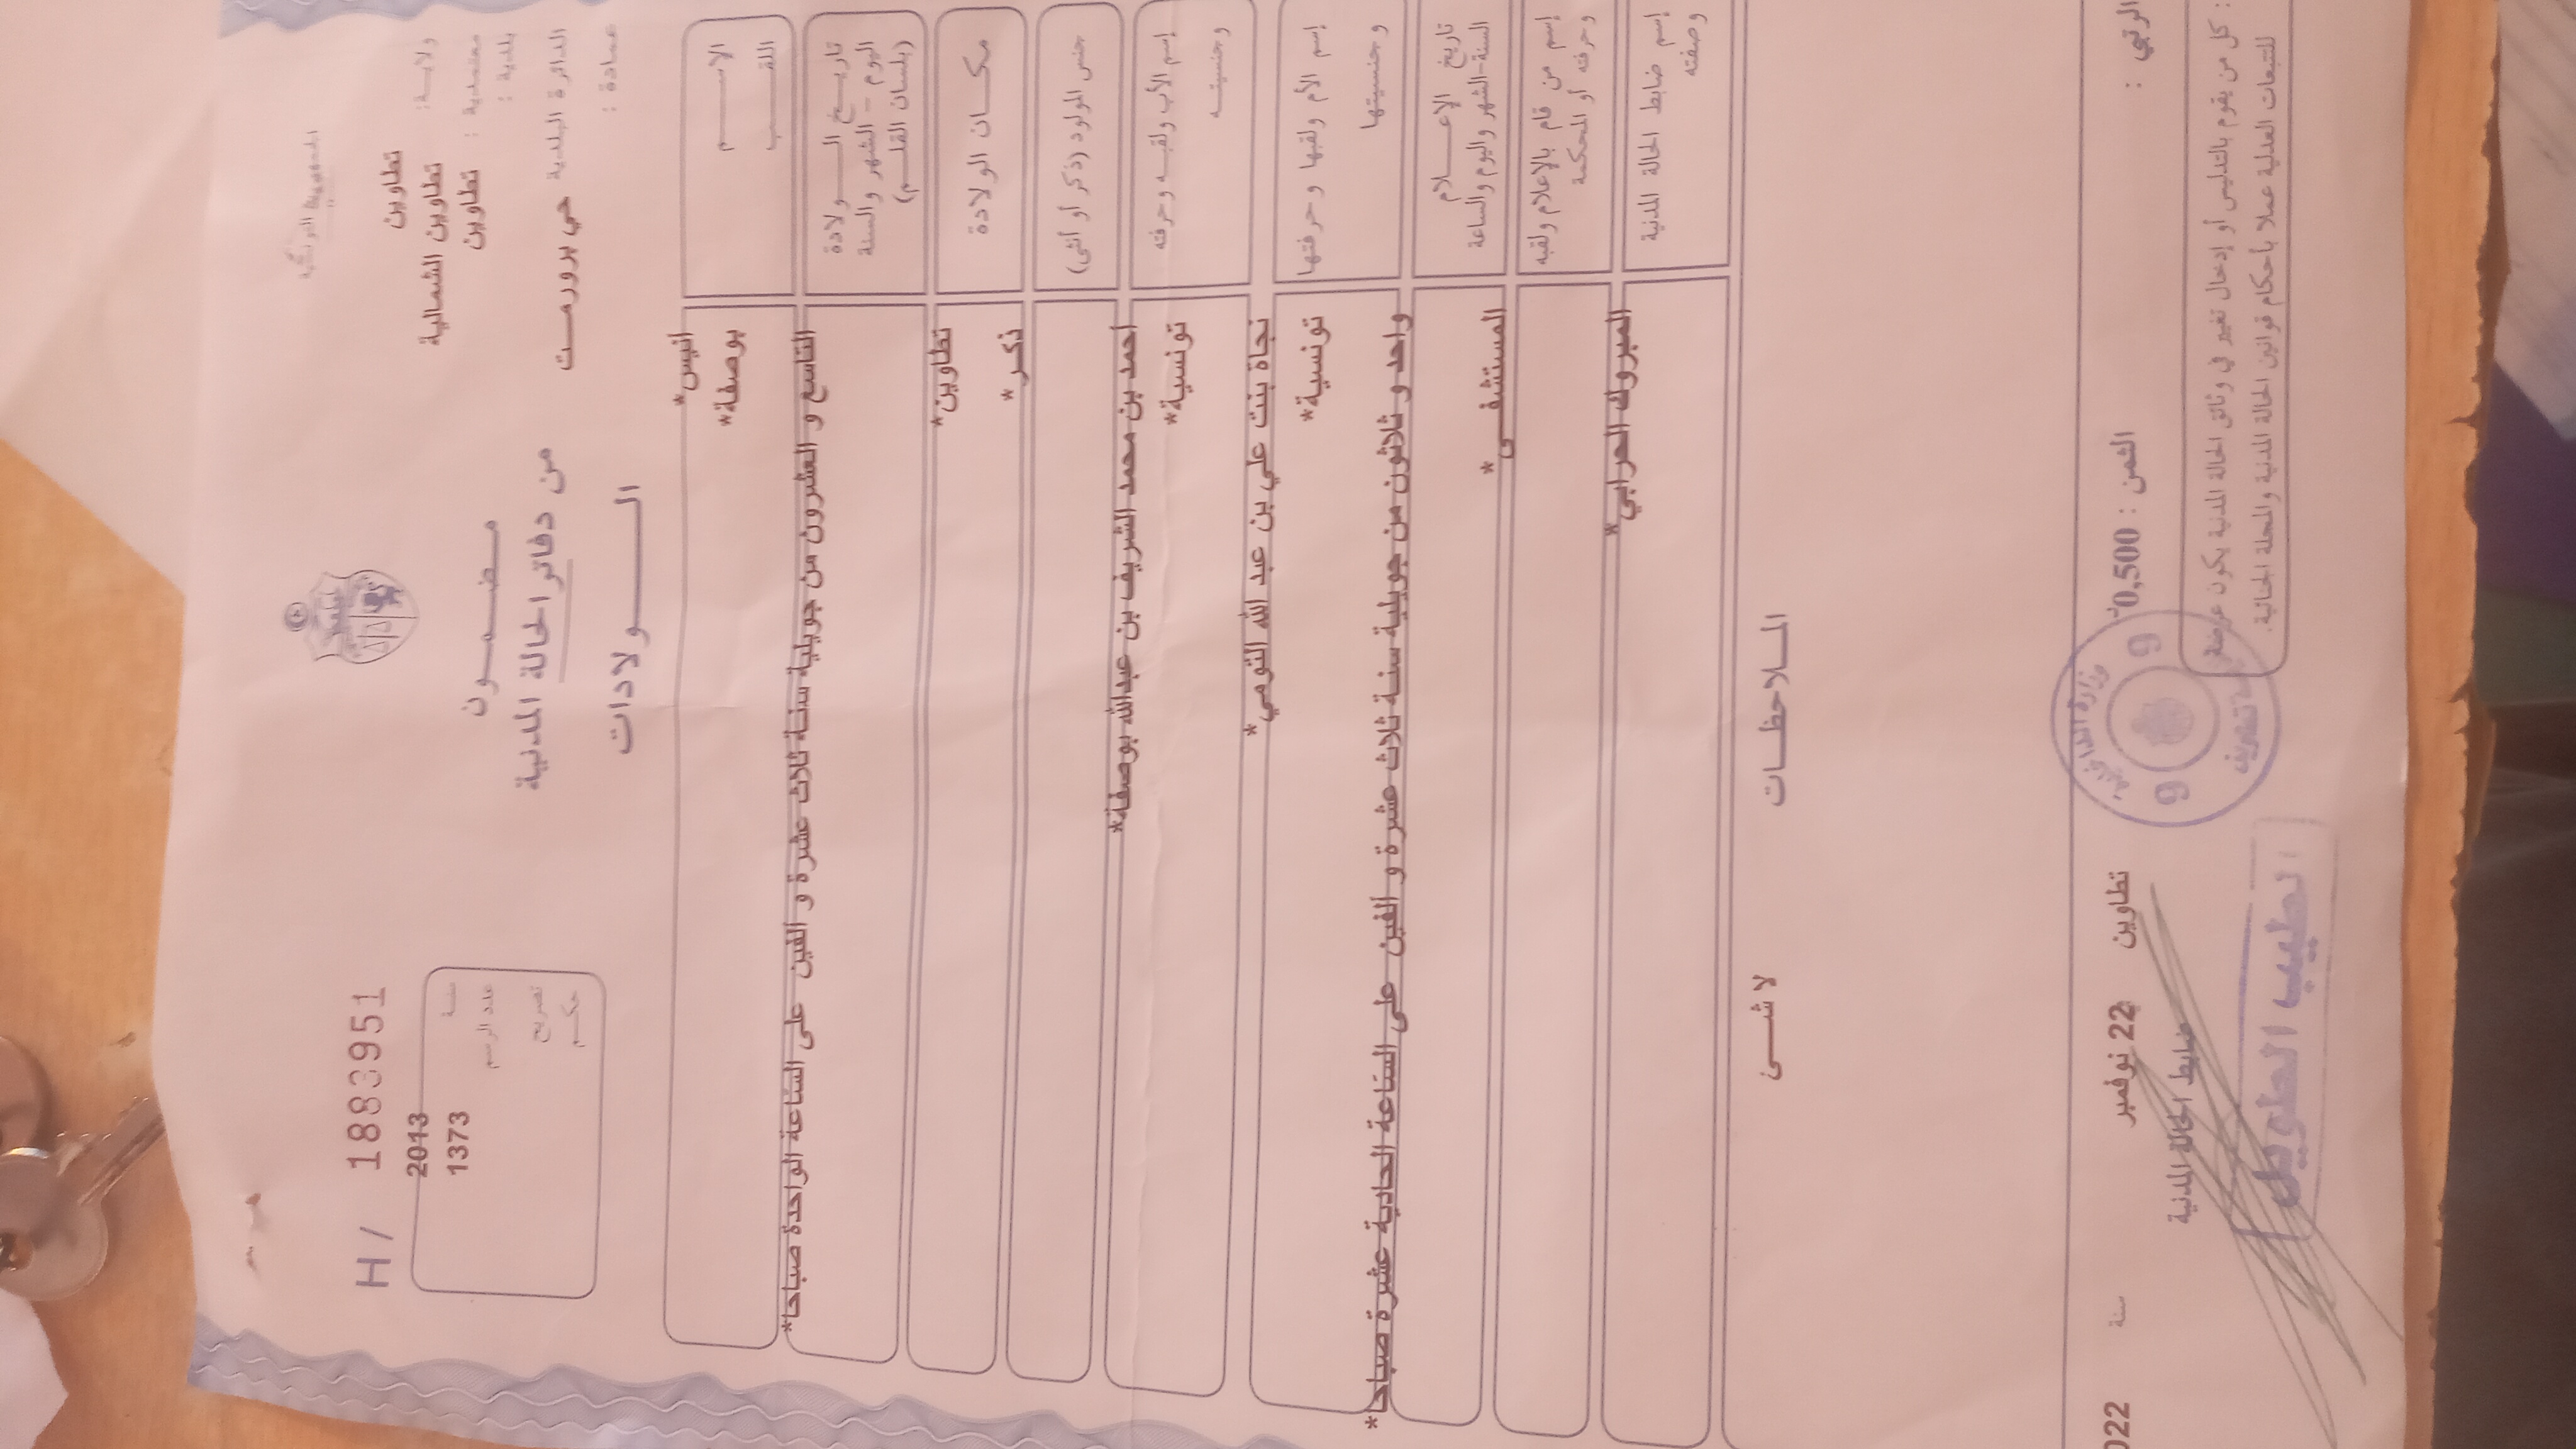 الجمهورية التونسية
ولاية : تطاوين
معتمدية : تطاوين الشمالية
بلدية : تطاوين
الدائرة البلدية حي برورمت
عمادة :
مضمون
من دفاتر الحالة المدنية
الولادات
H / 1883951
سنة 2013
عدد الرسم 1373
تصريح
حكم
الاسم
اللقب
انيس*
بوصفة*
تاريخ الولادة
اليوم - الشهر والسنة
(بلسان القلم)
التاسع و العشرون من جويلية سنة ثلاث عشرة و ألفين على الساعة الواحدة صباحا*
مكان الولادة
تطاوين*
جنس المولود (ذكر أو أنثى)
ذكر*
إسم الأب ولقبه وحرفته
وجنسيته
أحمد بن محمد الشريف بن عبدالله بوصفة*
تونسية*
إسم الأم ولقبها وحرفتها
وجنسيتها
نجاة بنت علي بن عبد الله التومي*
تونسية*
تاريخ الإعلام
السنة-الشهر واليوم والساعة
واحد و ثلاثون من جويلية سنة ثلاث عشرة و ألفين على الساعة الحادية عشرة صباحا*
إسم من قام بالإعلام ولقبه
وحرفته أو المحكمة
المستشفى*
إسم ضابط الحالة المدنية
وصفته
المبروك العرابي*
الملاحظات
لا شئ
الثمن : 0,500د
تطاوين 22 نوفمبر سنة 022
ضابط الحالة المدنية
: كل من يقوم بالتدليس أو إدخال تغيير في وثائق الحالة المدنية يكون عرضة
للتبعات العدلية عملا بأحكام قوانين الحالة المدنية والمجلة الجنائية.
وزارة الداخلية
9 9
الطيب الطويل